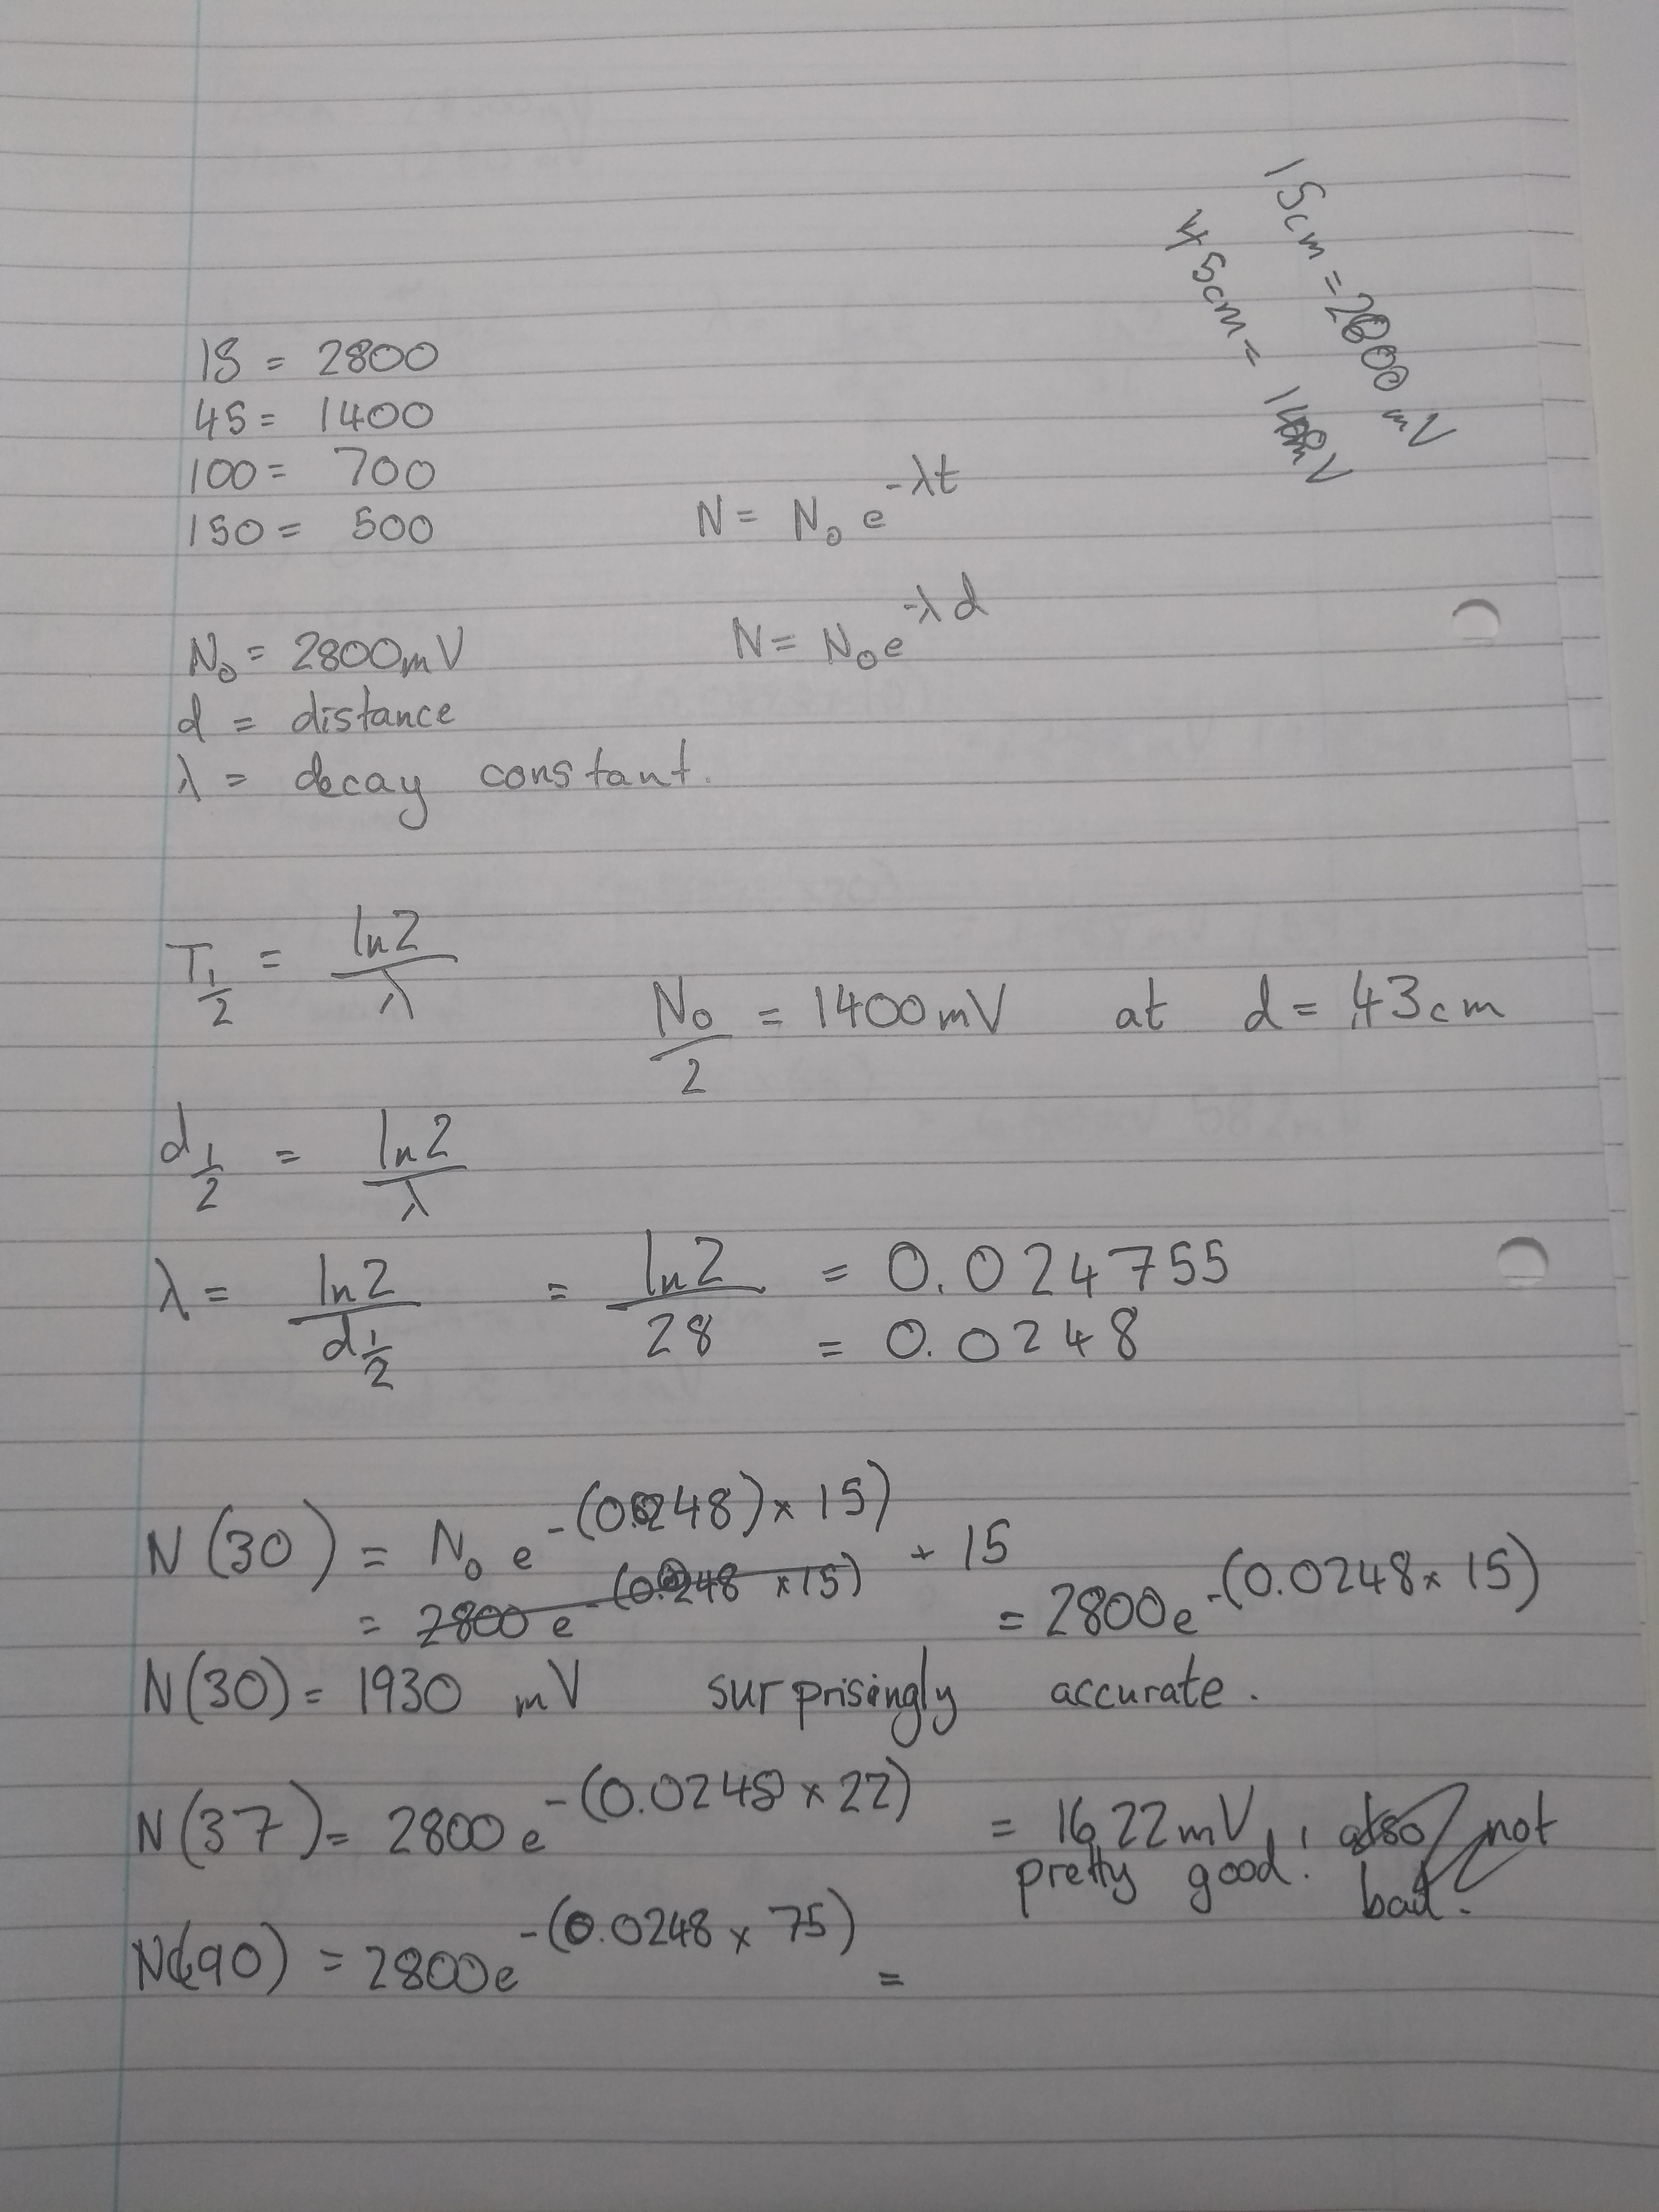 15cm = 2800 mV
45cm = 1400mV
15 = 2800
45 = 1400
100 = 700
150 = 500
N = N₀ e^-λt
N₀ = 2800mV
N = N₀ e^-λd
d = distance
λ = decay constant.
T½ = ln2/λ
N₀/2 = 1400mV at d = 43cm
d½ = ln2/λ
λ = ln2/d½ = ln2/28 = 0.024755
= 0.0248
N(30) = N₀ e^-(0.0248)×15) + 15
= 2800 e^-(0.0248 ×15) = 2800e^-(0.0248× 15)
N(30) = 1930 mV surprisingly accurate.
N(37) = 2800 e^-(0.0248 × 22) = 1622mV, also not
pretty good! bad.
N(90) = 2800e^-(0.0248 × 75) =